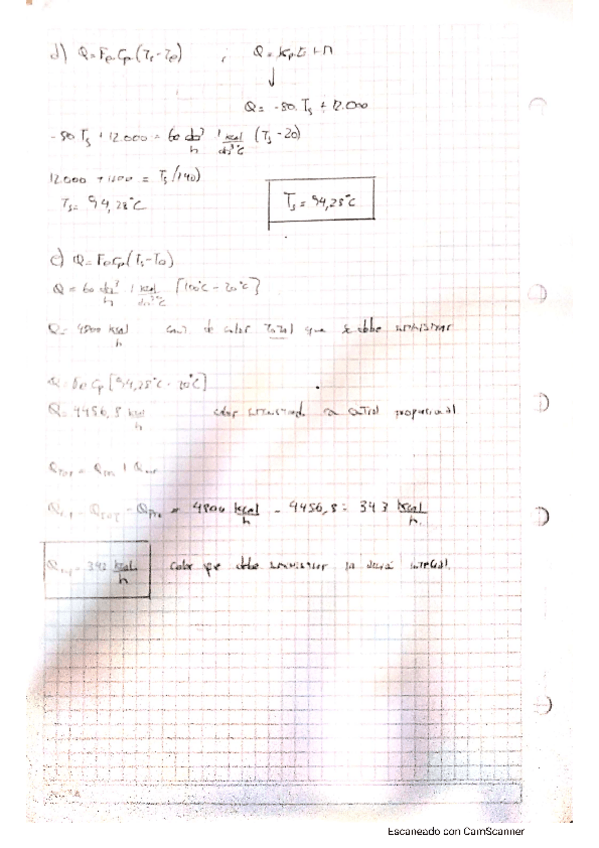 d) Q = Fe.Cp (Ts - To) ; Q = Kp.E + M
↓
Q = -80.Ts + 12.000
-80 Ts + 12.000 = 60 dm³/h 1 kcal/dm³°C (Ts - 20)
12.000 + 1200 = Ts (140)
Ts = 94,28°C
Ts = 94,28°C
e) Q = Fe Cp (Ts - To)
Q = 60 dm³/h 1 kcal/dm³°C [100°C - 20°C]
Q = 4800 kcal/h cant de calor total que se debe suministrar
Q = Fe Cp [94,28°C - 20°C]
Q = 4456,8 kcal/h calor suministrado control proporcional
- QPro = 4800 kcal/h - 4456,8 = 343 kcal/h.
= 343 kcal/h calor que debe suministrar la integral.
Escaneado con CamScanner